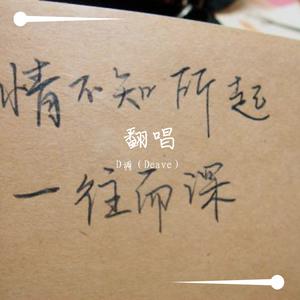 情不知所起
翻唱
D再（Deave）
一往而深